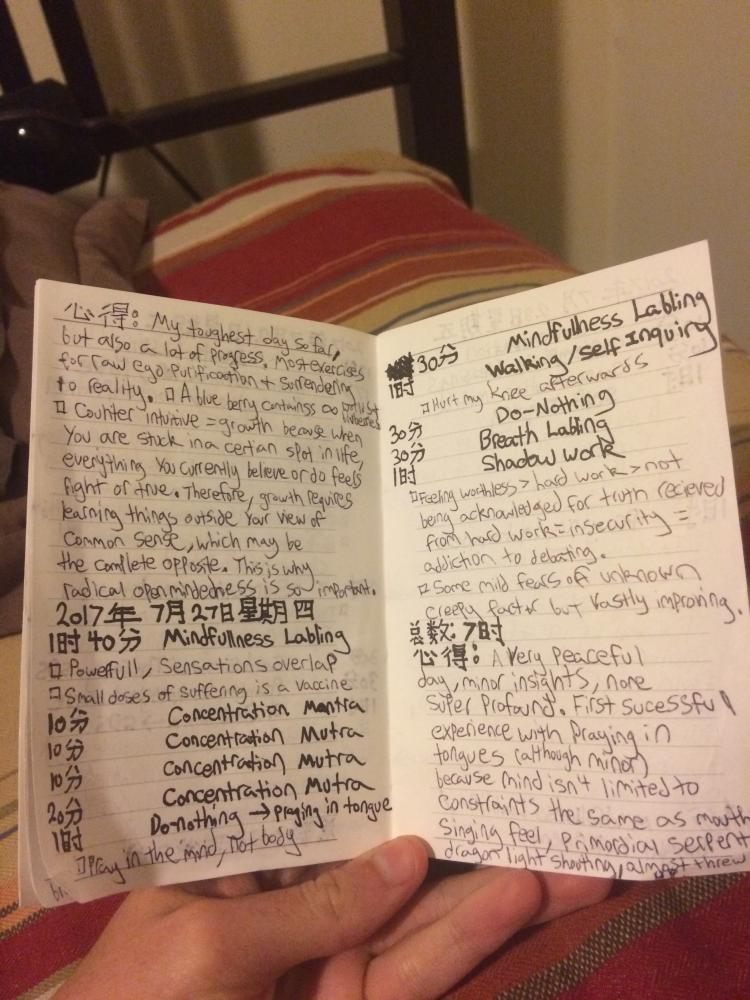 心得: My toughest day so far,
but also a lot of progress. Most exercises
for raw ego purification + surrendering
to reality. □ A blue berry containss ∞
□ Counter intuitive = growth because when
You are stuck in a certian spot in life,
everything You currently believe or do feels
right or true. Therefore, growth requires
learning things outside Your view of
Common sense, which may be
the complete opposite. This is why
radical openmindedness is so important.
2017年 7月27日星期四
1时40分 Mindfullness Labling
□ Powerfull, Sensations overlap
□ Small doses of suffering is a vaccine
10分 Concentration Mantra
10分 Concentration Mutra
10分 Concentration Mutra
20分 Concentration Mutra
1时 Do-nothing → Praying in tongue
□ Pray in the mind, not body
30分 Mindfullness Labling
1时 Walking/self Inquiry
□ Hurt my knee afterwards
30分 Do-Nothing
30分 Breath Labling
1时 Shadow work
□ Feeling worthless > hard work > not
being acknowledged for truth recieved
from hard work = insecurity =
addiction to debating.
□ Some mild fears of unknown
creepy factor but Vastly improving.
总数: 7时
心得: A Very Peaceful
day, minor insights, none
super Profound. First sucessful
experience with Praying in
tongues (although minor)
because mind isn't limited to
constraints the same as mouth
Singing feel, Primordial serpent
dragon light shouting, almost threw